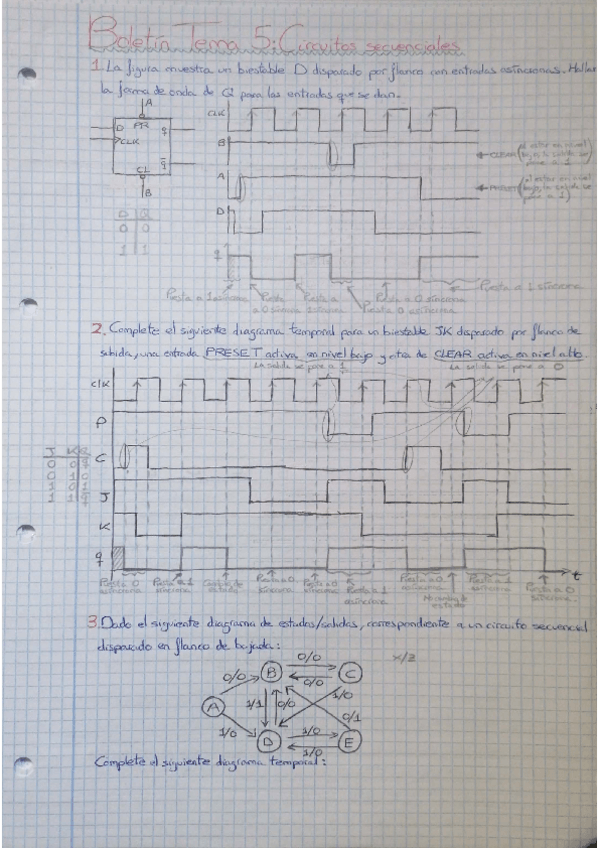 Boletín Tema 5: Circuitos secuenciales
1. La figura muestra un biestable D disparado por flanco con entradas asíncronas. Hallar
la forma de onda de Q para las entradas que se dan.
A
D PR q
CLK
CL q
B
CLK
B
CLEAR (al estar en nivel bajo la salida se pone a 1)
A
PRESET (al estar en nivel bajo la salida se pone a 1)
D
D Q
0 0
1 1
q
Puesta a 1 asíncrona
Puesta a 0 síncrona
Puesta a
Puesta a 0 asíncrona
Puesta a 0 síncrona
Puesta a 1 asíncrona
2. Complete el siguiente diagrama temporal para un biestable JK disparado por flanco de
subida, una entrada PRESET activa en nivel bajo y otra de CLEAR activa en nivel alto.
La salida se pone a 1
La salida se pone a 0
clk
P
C
J K
0 0
0 1
1 0
1 1
J
K
q
t
Puesta a 0 asíncrona
Puesta a 1 síncrona
Cambio de estado
Puesta a 0 síncrona
Puesta a 0 síncrona
Puesta a 1 asíncrona
Puesta a 0 asíncrona
No cambia de estado
Puesta a 1 síncrona
Puesta a 0 síncrona
3. Dado el siguiente diagrama de estados/salidas, correspondiente a un circuito secuencial
disparado en flanco de bajada:
X/Z
0/0
B
C
0/0
0/0
1/0
A
1/1
0/0
0/1
1/0
D
1/0
E
1/0
Complete el siguiente diagrama temporal: